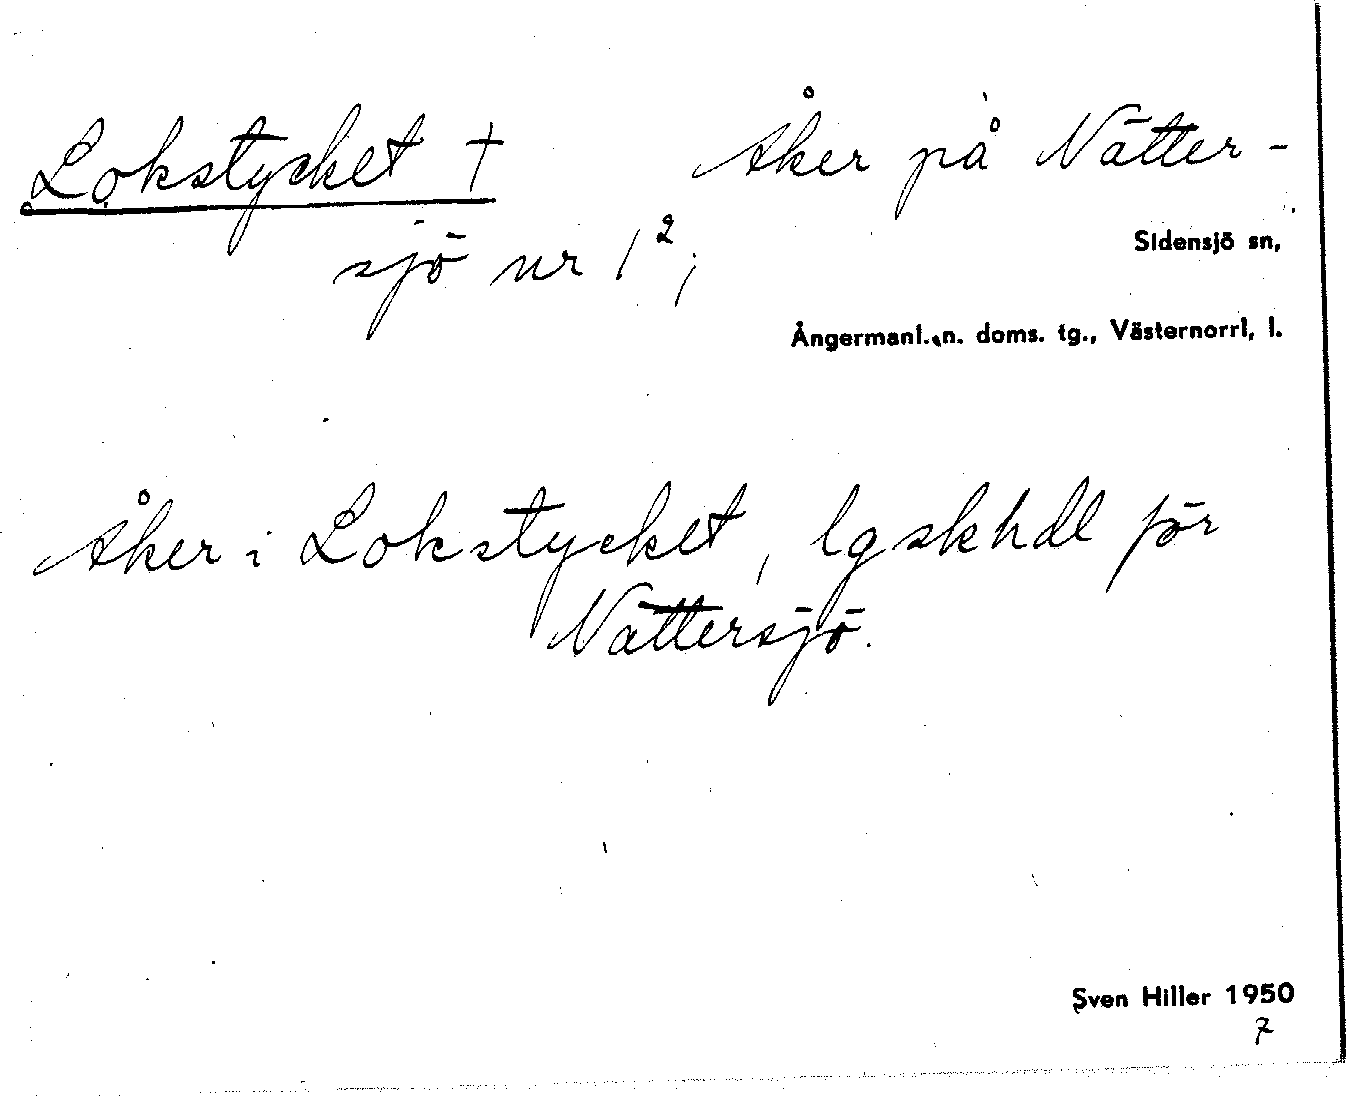 Lokstycket † Åker på Nätter-
Sidensjö sn,
sjö nr 1²;
Ångermanl. n. doms. tg., Västernorrl, l.
Åker i Lokstycket, lgskhdl för
Nättersjö.
Sven Hiller 1950
7